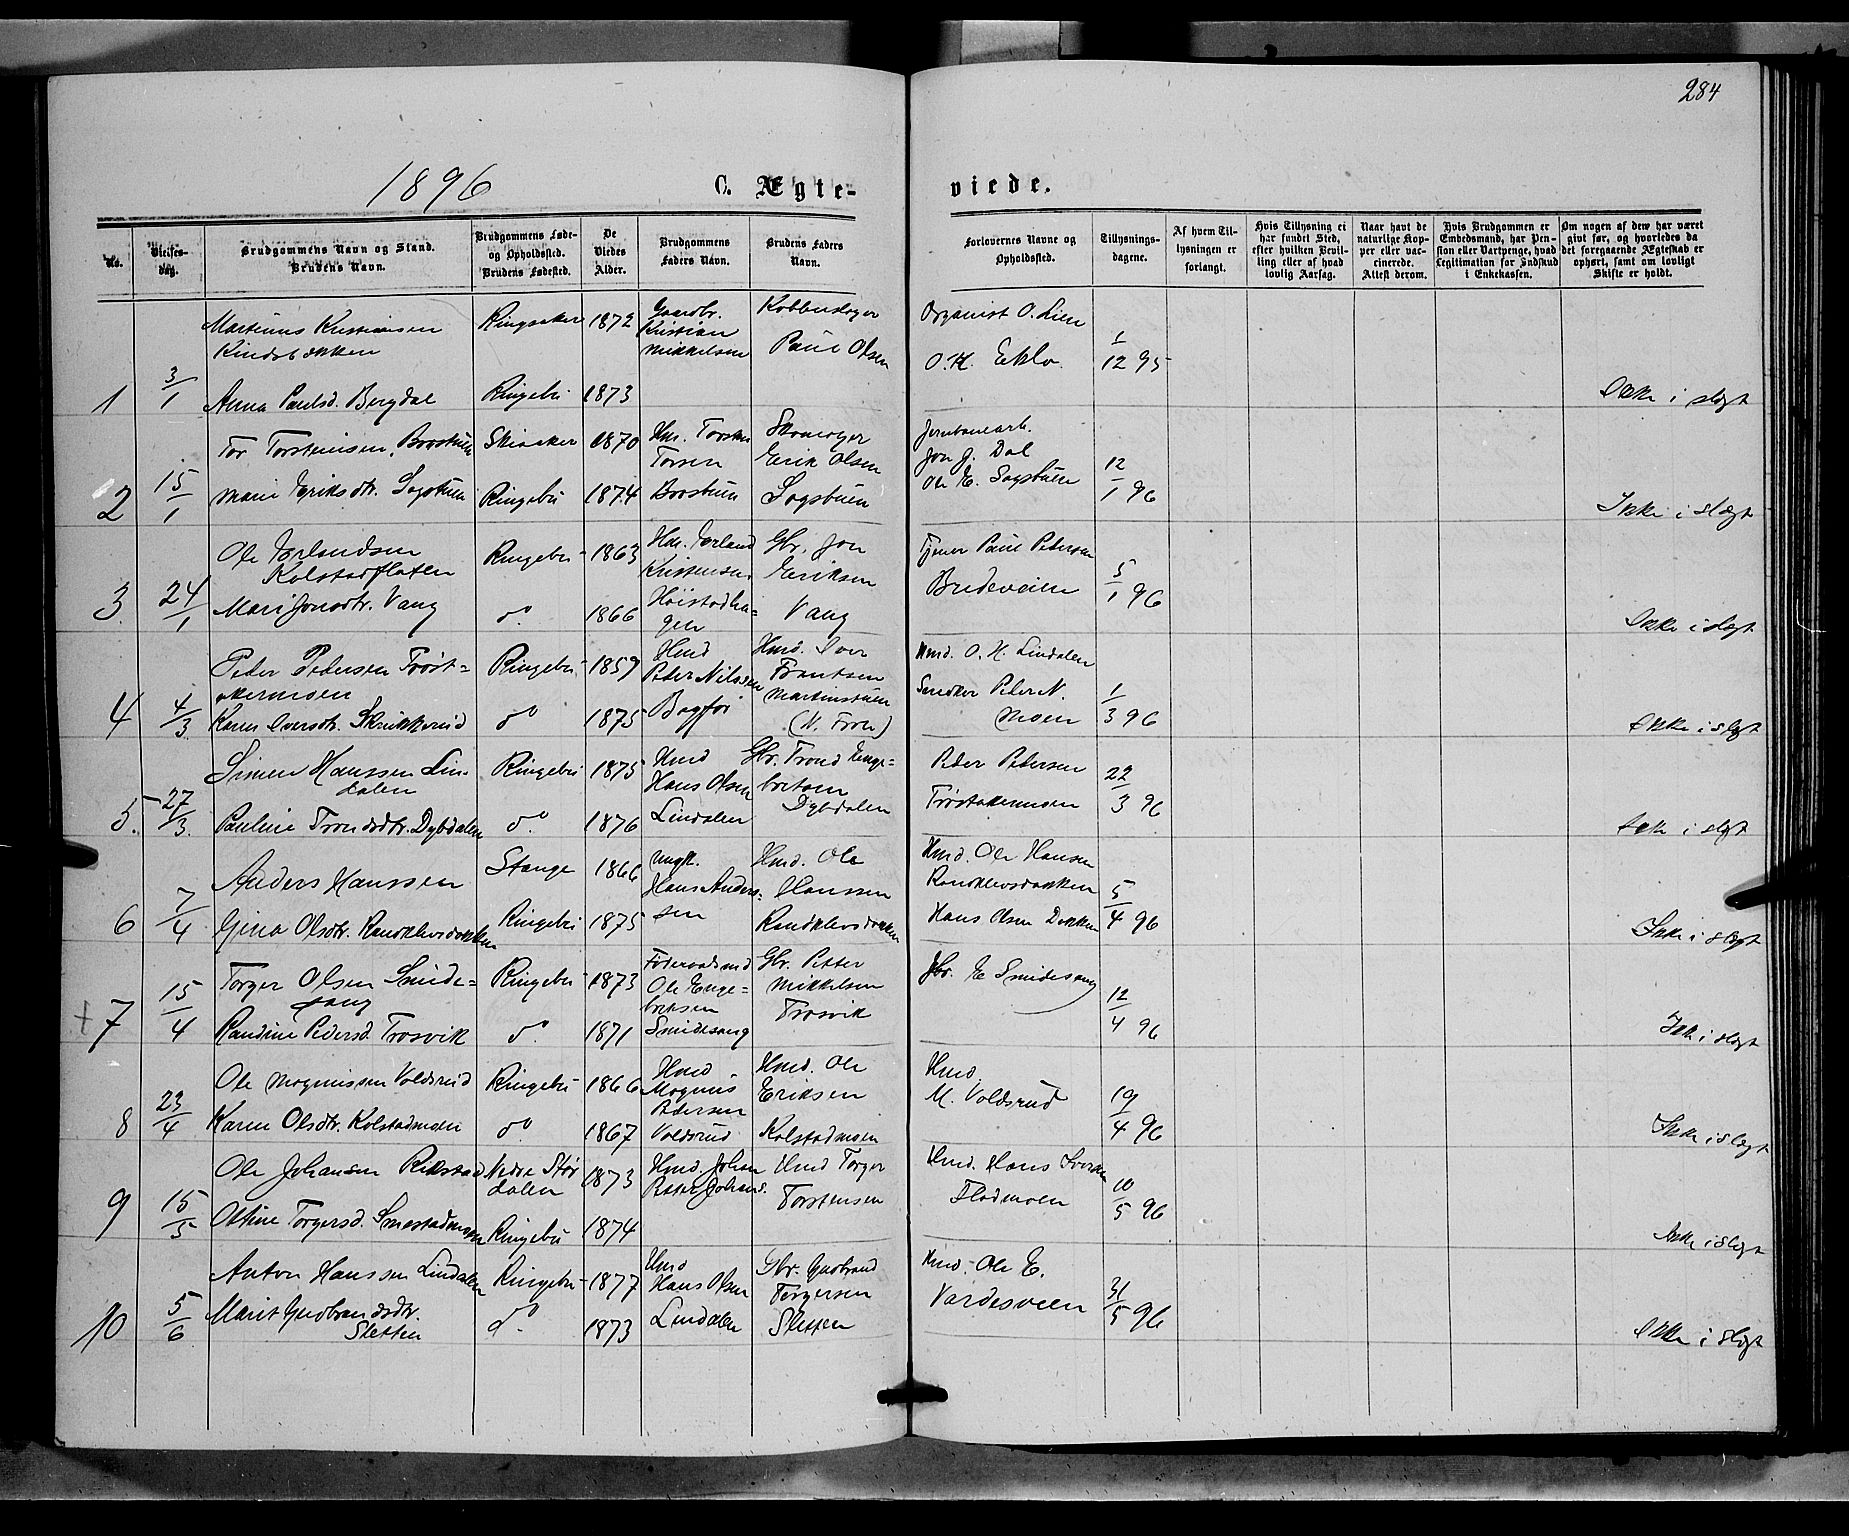 284
1896
C. Ægte-
viede.
No.
Vielses-
dag.
Brudgommens Navn og Stand.
Brudens Navn.
Brudgommens Føde-
og Opholdssted.
Brudens Fødested.
De
Viedes
Alder.
Brudgommens
Faders Navn.
Brudens Faders
Navn.
Forlovernes Navne og
Opholdssted.
Tillysnings-
dagene.
Af hvem Til-
lysningen er
forlangt.
Hvis Tillysning ei
har fundet Sted,
efter hvilken Bevil-
ling eller af hvad
lovlig Aarsag.
Naar havt de
naturlige Kop-
per eller vac-
cinerede.
Attest derom.
Hvis Brudgommen er
Embedsmand, har Pen-
sion eller Vartpenge, hvad
Legitimation for Indskud
i Enkekassen.
Om nogen af dem har været
givt før, og hvorledes da
det foregaaende Ægteskab er
ophørt, samt om lovligt
Skifte er holdt.
1
3/1
Martinus Kristiansen
Kindsbækken
Anna Paulsd. Bergdal
Ringsaker
Ringebu
1872
1873
Gaardbr.
Kristian
Mikkelsen
Kobberslager
Paul Olsen
Organist O. Lien
O. H. Eklo.
1/12 95
Ikke i slægt
2
15/1
Tor Torsteinsen, Brostuen
Marie Eriksdtr. Sagstuen
Skiaaker
Ringebu
1870
1874
Hm. Torsten
Torsen
Brostuen
Skomager
Erik Olsen
Sagstuen
Jernbanearb.
Jon J. Dal
Ole E. Sagstuen
12/1 96
Ikke i slægt
3.
24/1
Ole Erlandsen
Kolstadflaten
Mari Jonsdtr. Vang
Ringebu
do.
1863
1866
Hm. Erland
Kristensen
Høistadha-
gen
Gbr. Jon
Eriksen
Vang
Tjener Paul Pedersen
Bredeveien
5/1 96
Ikke i slægt
4
4/3
Peder Pedersen Trøst-
akermoen
Karen Iversdtr. Skrukkerud
Ringebu
do
1859
1875
Hmd
Peder Nilsen
Bøgfor
Hmd. Iver
Frantsen
Martinstuen
(N. Fron)
Hmd. O. H. Lindalen
Snedker Peter N.
Moen
1/3 96
Ikke i slægt
5.
27/3
Simen Hanssen Lin-
dalen
Pauline Trondsdtr. Dybdalen
Ringebu
do.
1875
1876
Hmd
Hans Olsen
Lindalen
Gbr. Trond Enge-
bretsen
Dybdalen
Peder Pedersen
Trøstakermoen
22/3 96
Ikke i slægt
6
7/4
Anders Hanssen
Gina Olsdtr. Randklevsdokken
Stange
Ringebu
1866
1875
Ungk.
Hans Anders-
sen
Hmd. Ole
Hanssen
Randklevsdokken
Hmd. Ole Hansen
Randklevsdokken
Hans Olsen Dokken
5/4 96
Ikke i slægt
+ 7
15/4
Torger Olsen Smide-
sang
Randine Pedersd. Trosvik
Ringebu
do.
1873
1871
Føderaadsmd
Ole Enge-
bretsen
Smidesang
Gbr. Petter
Mikkelsen
Trosvik
Gbr. E Smidesang
12/4 96
Ikke i slægt
8
23/4
Ole Magnussen Voldsrud
Karen Olsdtr. Kolstadmoen
Ringebu
do
1866
1867
Hmd
Magnus
Pedersen
Voldsrud
Hmd. Ole
Eriksen
Kolstadmoen
Hmd
M. Voldsrud
19/4 96
Ikke i slægt
9
15/5
Ole Johansen Rikstad
Othine Torgersd. Smestadmoen
Nedre Stør
dalen
Ringebu
1873
1874
Hmd. Johan
Peter Johans.
Hmd Torger
Torstensen
Hmd. Hans Iversen
Fladmoen
10/5 96
Ikke i slægt
10
5/6
Anton Hanssen Lindalen
Marit Gudbrandsdtr.
Sletten
Ringebu
do.
1877
1873
Hmd
Hans Olsen
Lindalen
Gbr. Gudbrand
Torgersen
Sletten
Hmd. Ole E.
Vardesveen
31/5 96
Ikke i slægt